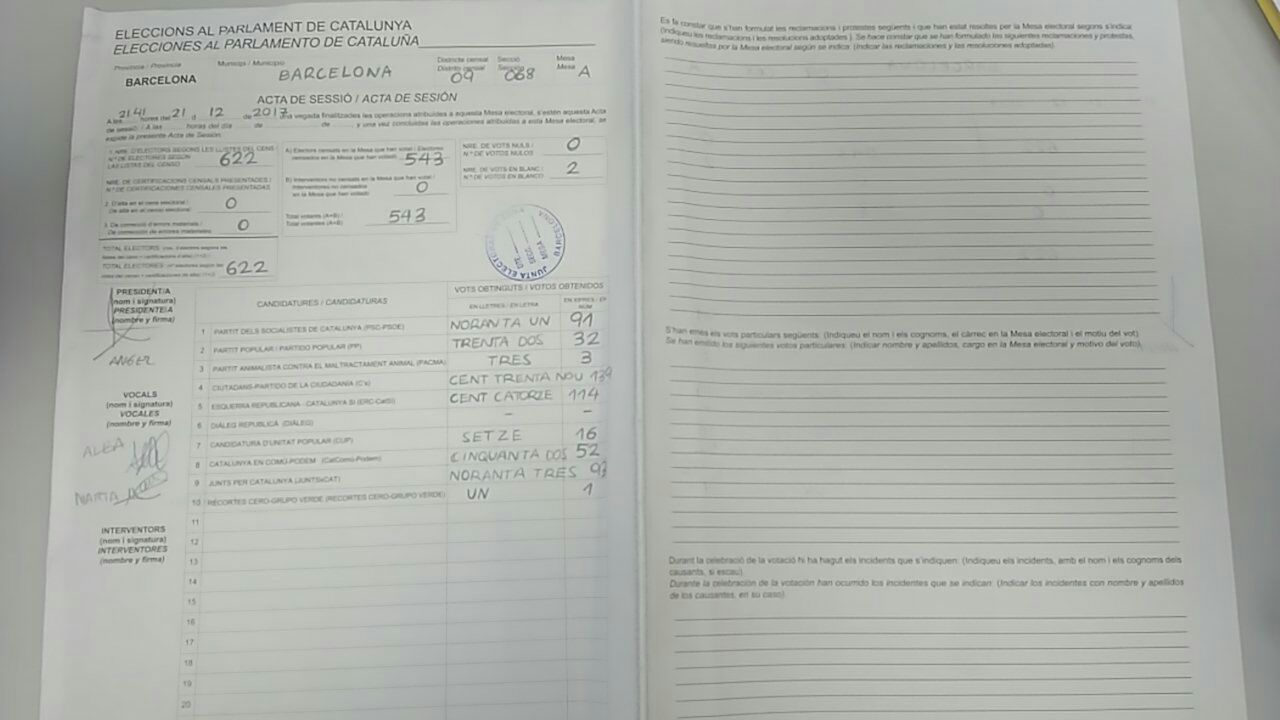 ELECCIONS AL PARLAMENT DE CATALUNYA
ELECCIONES AL PARLAMENTO DE CATALUÑA
Província / Provincia
BARCELONA
Municipi / Municipio
BARCELONA
Districte censal
Distrito censal
09
Secció
Sección
068
Mesa
Mesa
A
ACTA DE SESSIÓ / ACTA DE SESIÓN
A les 2141 hores del 21 d 12 de 2017 una vegada finalitzades les operacions atribuïdes a aquesta Mesa electoral, s'estén aquesta Acta
de sessió. / A las horas del día de de , y una vez concluidas las operaciones atribuidas a esta Mesa electoral, se
expide la presente Acta de Sesión.
1. NRE. D'ELECTORS SEGONS LES LLISTES DEL CENS
Nº DE ELECTORES SEGÚN
LAS LISTAS DEL CENSO
622
NRE. DE CERTIFICACIONS CENSALS PRESENTADES /
Nº DE CERTIFICACIONES CENSALES PRESENTADAS
2. D'alta en el cens electoral /
De alta en el censo electoral
0
3. De correcció d'errors materials /
De corrección de errores materiales
0
TOTAL ELECTORS
TOTAL ELECTORES
622
A) Electors censats en la Mesa que han votat / Electores
censados en la Mesa que han votado
543
B) Interventors no censats en la Mesa que han votat /
Interventores no censados
en la Mesa que han votado
0
Total votants (A+B) /
Total votantes (A+B)
543
NRE. DE VOTS NULS /
Nº DE VOTOS NULOS
0
NRE. DE VOTS EN BLANC /
Nº DE VOTOS EN BLANCO
2
JUNTA ELECTORAL DE ZONA BARCELONA
DTE.
SECC.
MESA
PRESIDENT/A
(nom i signatura)
PRESIDENTE/A
(nombre y firma)
ANGEL
VOCALS
(nom i signatura)
VOCALES
(nombre y firma)
INTERVENTORS
(nom i signatura)
INTERVENTORES
(nombre y firma)
CANDIDATURES / CANDIDATURAS
VOTS OBTINGUTS / VOTOS OBTENIDOS
EN LLETRES / EN LETRA
EN XIFRES / EN NÚM
1 PARTIT DELS SOCIALISTES DE CATALUNYA (PSC-PSOE) NORANTA UN 91
2 PARTIT POPULAR / PARTIDO POPULAR (PP) TRENTA DOS 32
3 PARTIT ANIMALISTA CONTRA EL MALTRACTAMENT ANIMAL (PACMA) TRES 3
4 CIUTADANS-PARTIDO DE LA CIUDADANÍA (C's) CENT TRENTA NOU 139
5 ESQUERRA REPUBLICANA - CATALUNYA SÍ (ERC-CatSí) CENT CATORZE 114
6 DIÀLEG REPUBLICÀ (DIÀLEG) - -
7 CANDIDATURA D'UNITAT POPULAR (CUP) SETZE 16
8 CATALUNYA EN COMÚ-PODEM (CatComú-Podem) CINQUANTA DOS 52
9 JUNTS PER CATALUNYA (JUNTSxCAT) NORANTA TRES 93
10 RECORTES CERO-GRUPO VERDE (RECORTES CERO-GRUPO VERDE) UN 1
11
12
13
14
15
16
17
18
19
20
Es fa constar que s'han formulat les reclamacions i protestes següents i que han estat resoltes per la Mesa electoral segons s'indica:
(Indiqueu les reclamacions i les resolucions adoptades). Se hace constar que se han formulado las siguientes reclamaciones y protestas,
siendo resueltas por la Mesa electoral según se indica: (Indicar las reclamaciones y las resoluciones adoptadas).
S'han emès els vots particulars següents: (Indiqueu el nom i els cognoms, el càrrec en la Mesa electoral i el motiu del vot).
Se han emitido los siguientes votos particulares: (Indicar nombre y apellidos, cargo en la Mesa electoral y motivo del voto).
Durant la celebració de la votació hi ha hagut els incidents que s'indiquen: (Indiqueu els incidents, amb el nom i els cognoms dels
causants, si escau).
Durante la celebración de la votación han ocurrido los incidentes que se indican: (Indicar los incidentes con nombre y apellidos
de los causantes, en su caso).